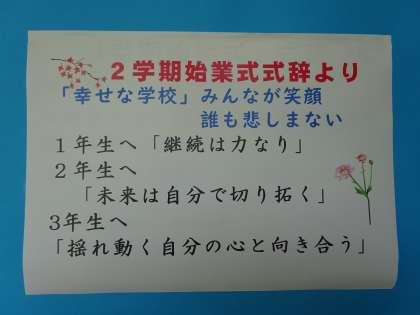 ２学期始業式式辞より
「幸せな学校」みんなが笑顔
誰も悲しまない
１年生へ「継続は力なり」
２年生へ
「未来は自分で切り拓く」
3年生へ
「揺れ動く自分の心と向き合う」